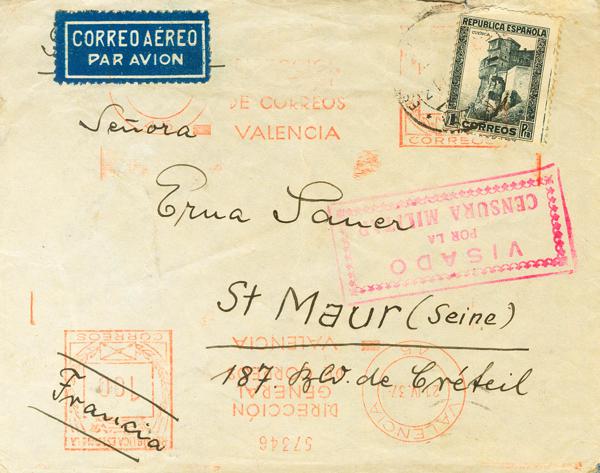 CORREO AÉREO
PAR AVION
REPUBLICA ESPAÑOLA
CUENCA
1 CORREOS Pta
DE CORREOS
VALENCIA
CORREOS
Señora
Erna Lauer
VISADO
POR LA
CENSURA MILITAR
St Maur (Seine)
187 Blv. de Créteil
Francia
CORREOS
DIRECCIÓN
GENERAL
DE CORREOS
VALENCIA
VALENCIA
57346